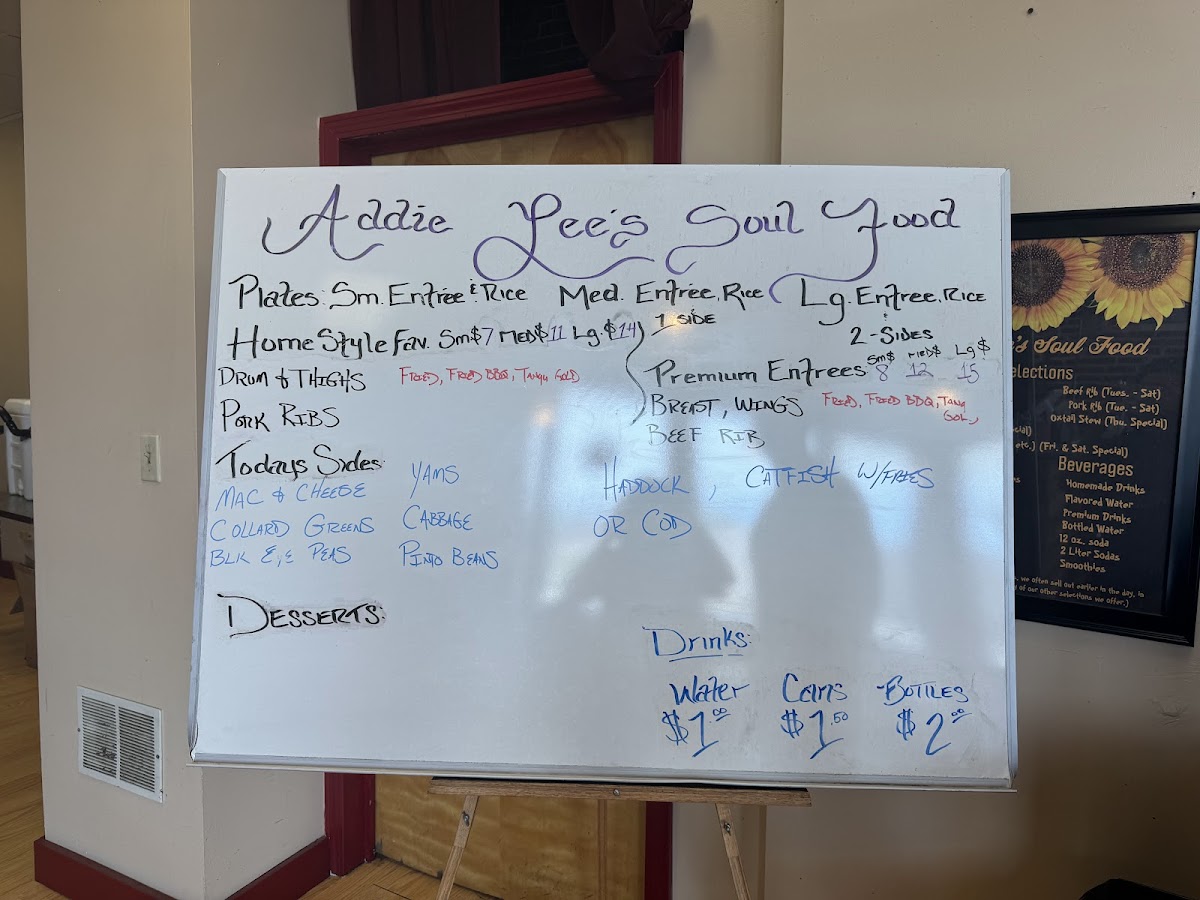 Addie Lee's Soul Food
Plates: Sm. Entrée & Rice Med. Entrée, Rice Lg. Entrée, Rice
1 SIDE
2-SIDES
HomeStyle Fav. Sm$7 MED$11 Lg.$14
DRUM & THIGHS FRIED, FRIED BBQ, TANGY GOLD
PORK RIBS
Sm$ MED$ Lg$
Premium Entrees 8 12 15
BREAST, WINGS FRIED, FRIED BBQ, TANG
GOL,
BEEF RIB
Todays Sides:
MAC & CHEESE YAMS
COLLARD GREENS CABBAGE
BLK EYE PEAS PINTO BEANS
HADDOCK, CATFISH W/FRIES
OR COD
DESSERTS:
Drinks:
Water Cans BOTTLES
$1.00 $1.50 $2.00
's Soul Food
elections
Beef Rib (Tues. - Sat)
Pork Rib (Tue. - Sat)
Oxtail Stew (Thu. Special)
cial)
etc.) (Fri. & Sat. Special)
Beverages
Homemade Drinks
Flavored Water
Premium Drinks
Bottled Water
12 oz. soda
2 Liter Sodas
Smoothies
, we often sell out earlier in the day, is
of our other selections we offer.)